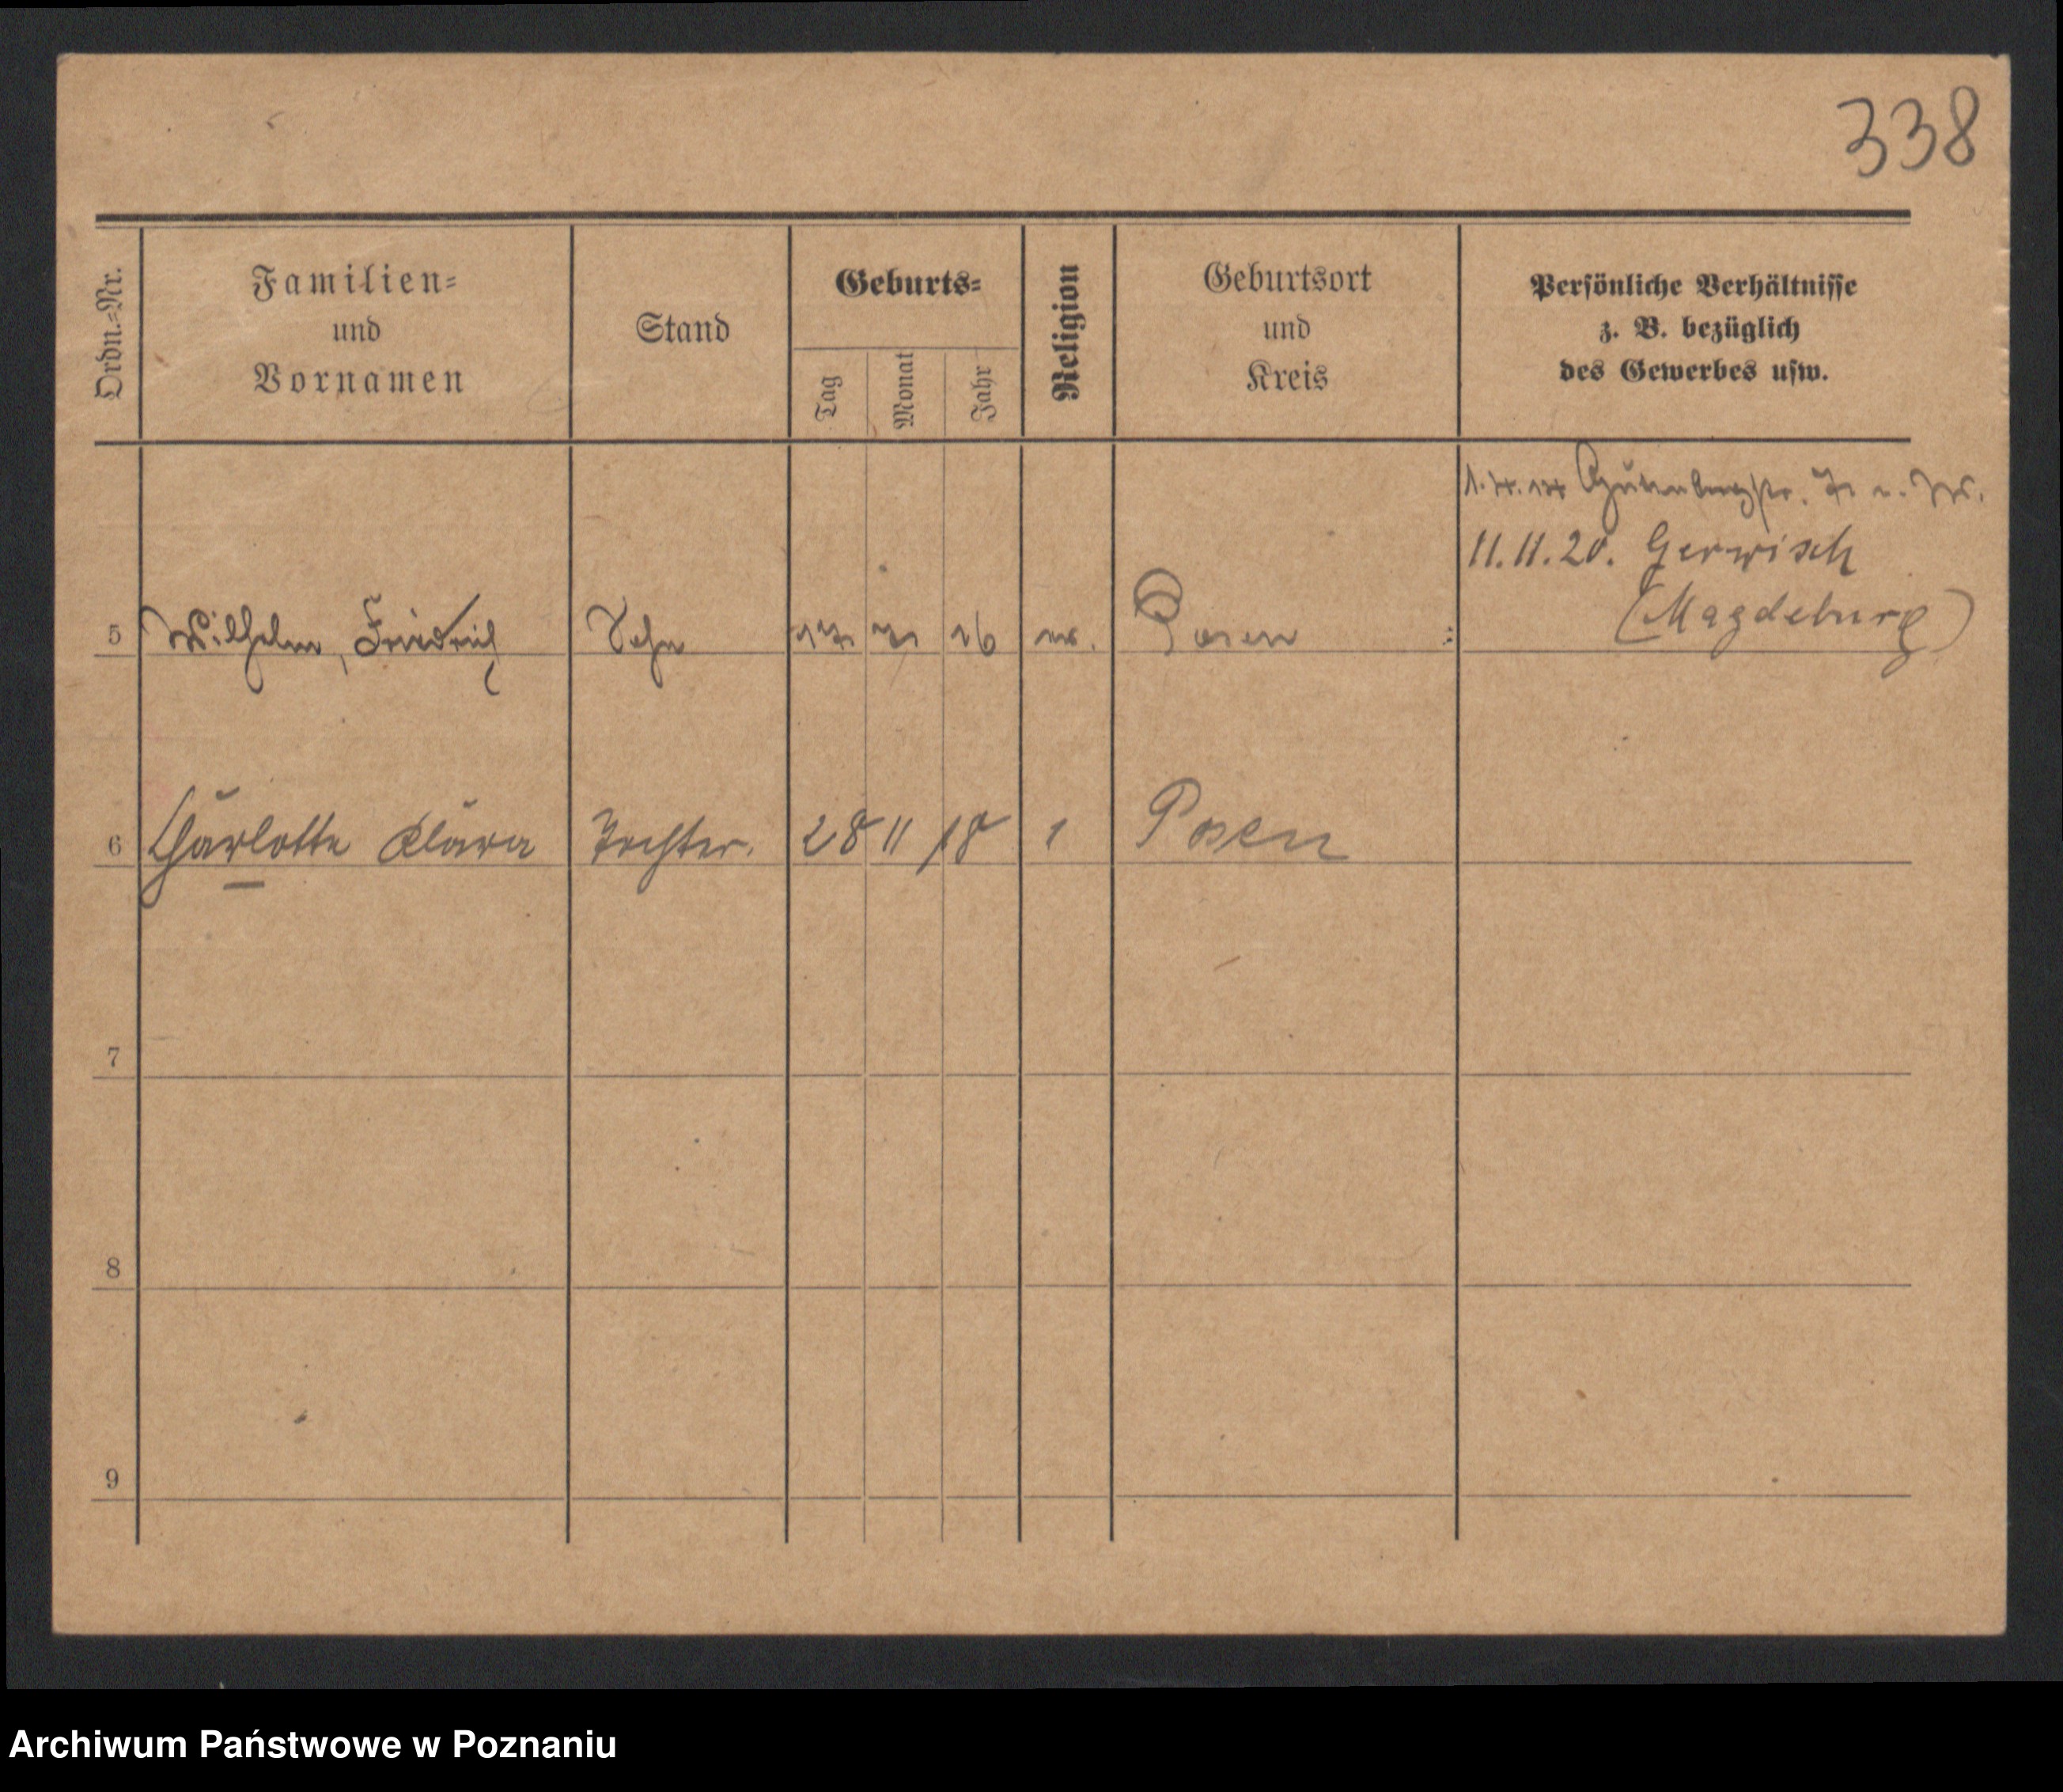 338
Ordn.-Nr.
Familien-
und
Vornamen
Stand
Geburts-
Tag
Monat
Jahr
Religion
Geburtsort
und
Kreis
Persönliche Verhältnisse
z. B. bezüglich
des Gewerbes usw.
11.11.20. Gerwisch
(Magdeburg)
5 Wilhelm, Friedrich Sohn 16 Posen
6 Charlotte Klara Tochter. 28 11 18 Posen
7
8
9
Archiwum Państwowe w Poznaniu